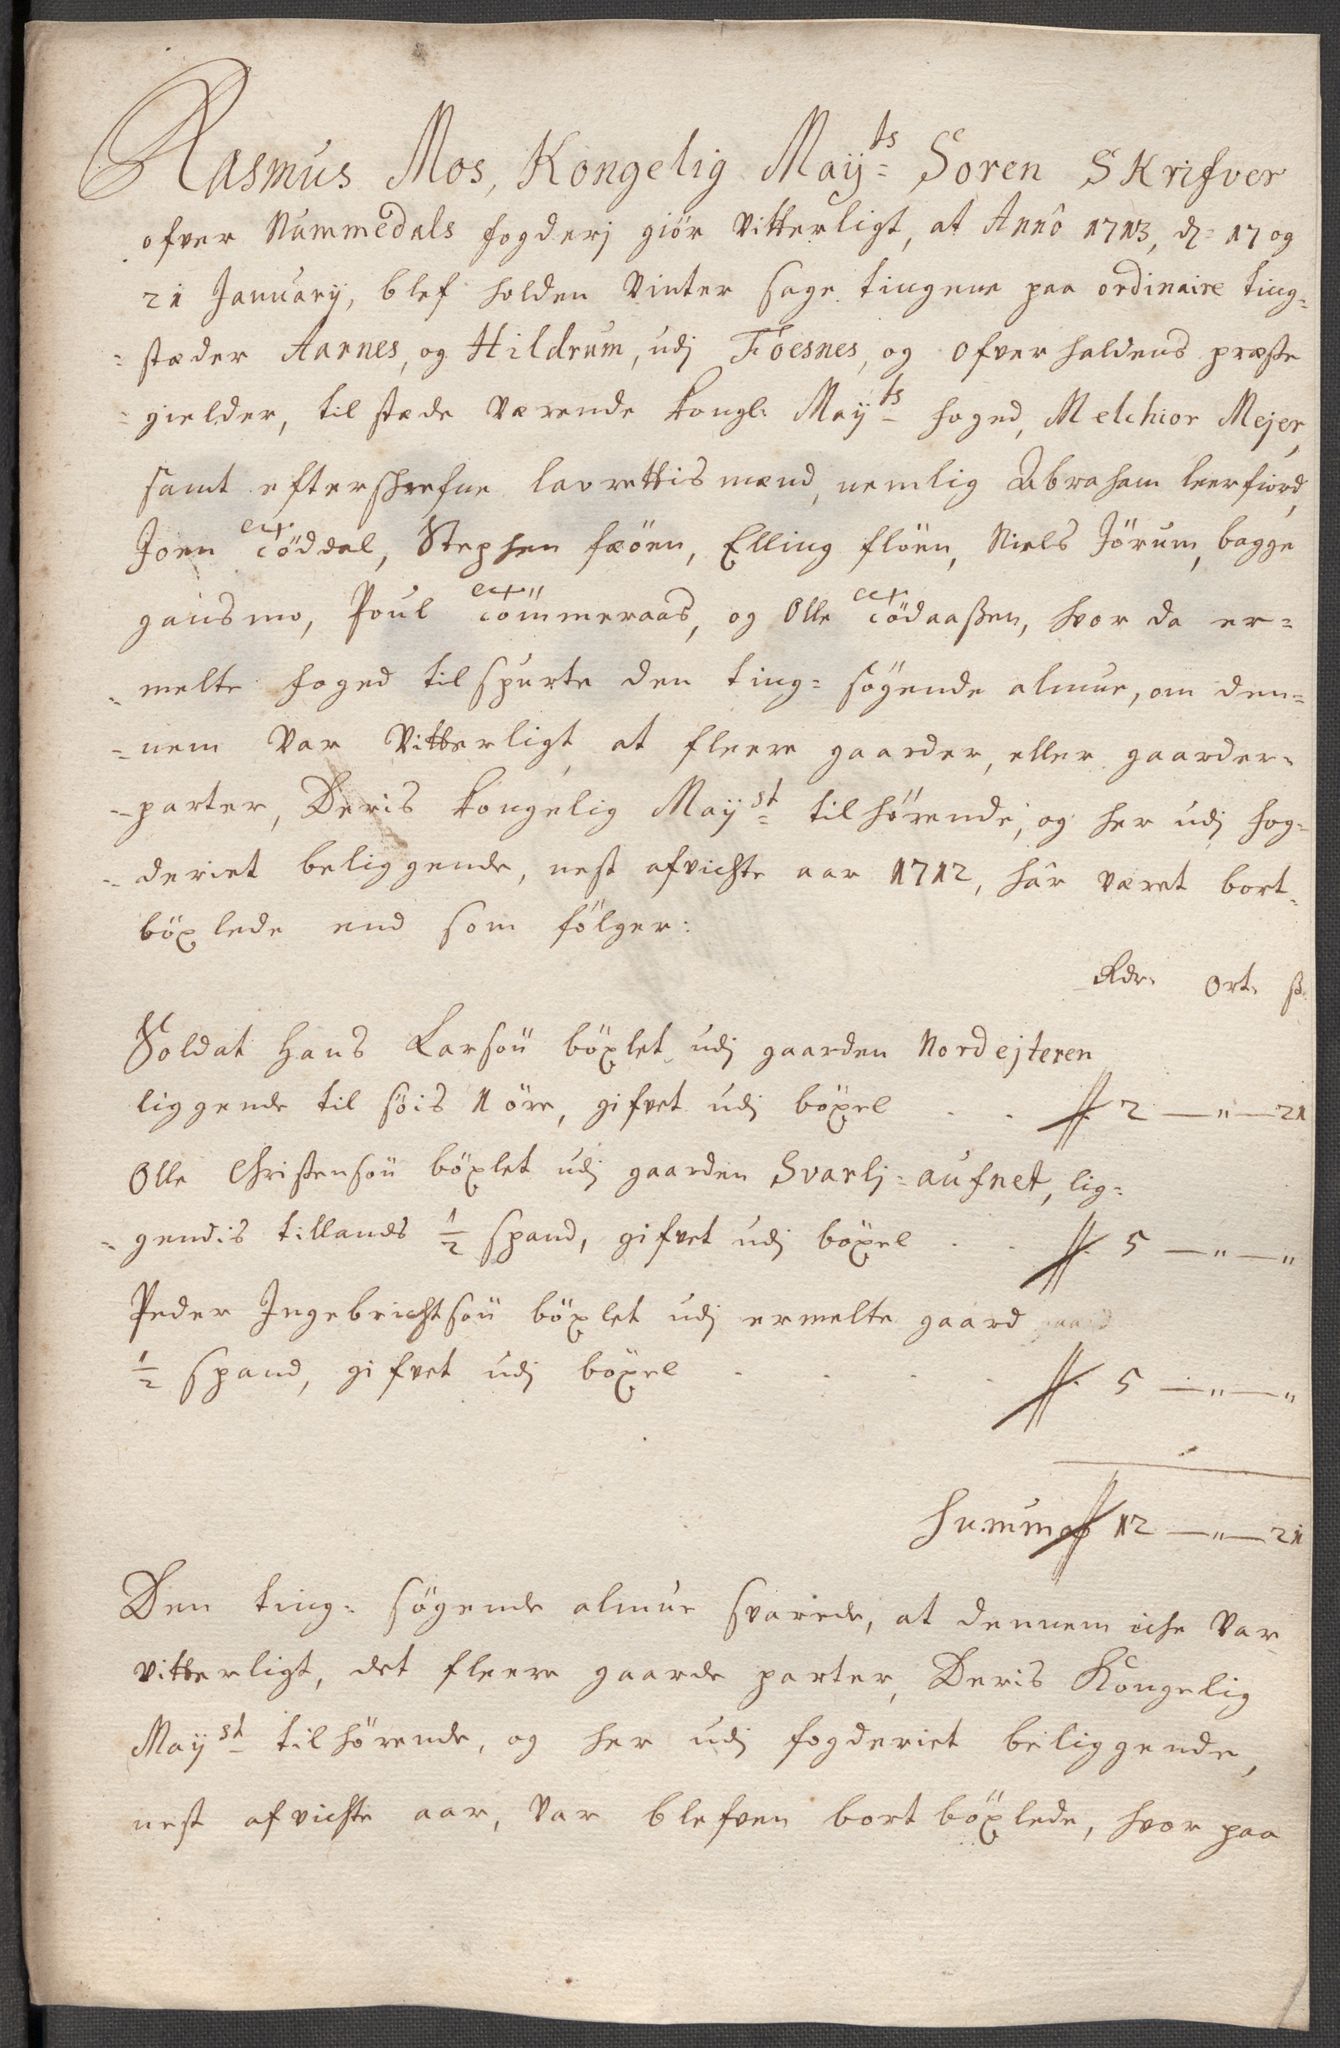 Rasmus Mos, Kongelig Maij^ts Soren SKrifver
ofver Nummedals fogderj giör vitterligt, at Anno 1713, d: 17 og
21 January, blef holden Vinter sage tingene paa ordinaire ting-
stæder Aarnes, og Hildrum, udj Föesnes, og Ofverhaldens præste
gielder, tilstæde værende Kongl: Maij^ts foged, Melchior Mejer,
samt efterschrefne laurettismænd, nemlig Abraham leerfiord,
Joen Töddal, Stephen faöen, Elling flöen, Niels Jörum, bagge
gansmo, Poul Tömmeraas, og Olle Tödaaßen, hvor da er-
melte foged tilspurte den ting-søgende almue, om den-
nem var vitterligt, at fleere gaarder, eller gaarder-
parter, Deris Kongelig Maij^st tilhørende, og her udj fog-
deriet beliggende, nest afvichte aar 1712, hâr været bort-
böxlede end som fölger:
Rdr. Ort. ß.
Soldat Hans Larsön böxlet udj gaarden Nordejteren
liggende til søis 1 öre, gifvet udj böxel . . 2 — " — 21
Olle Christensön böxlet udj gaarden Svarlj-aufnet, lig-
gendis tillands 1/2 spand, gifvet udj böxel . . 5 — " — "
Peder Ingebrichtsön böxlet udj ermelte gaard
1/2 spand, gifvet udj böxel . . . . 5 — " — "
Summa 12 — " — 21
Den ting-søgende almue svarede, at dennem iche var
vitterligt, det fleere gaarde parter, Deris Kongelig
Maij^st tilhørende, og her udj fogderiet beliggende,
nest afvichte aar, var blefven bortböxlede, hvor paa